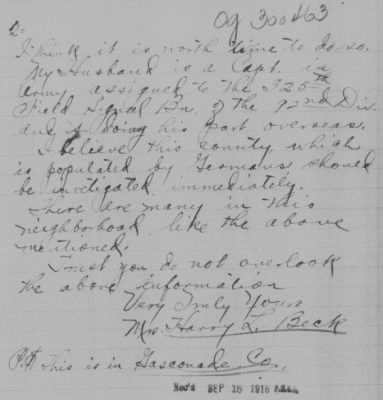 Og 300463
2-
I think it is worth time to do so.
My Husband is a Capt. in
Army assigned to the 325th
Field Signal Bn. of the 92nd Div.
and is doing his part overseas.
I believe this county which
is populated by Germans should
be invtigated immediately.
There are many in this
neighborhood, like the above
mentioned.
Trust you do not overlook
the above information
Very Truly Yours
Mrs Harry L. Beck
P.S. This is in Gasconade Co.
Rec'd SEP 18 1918